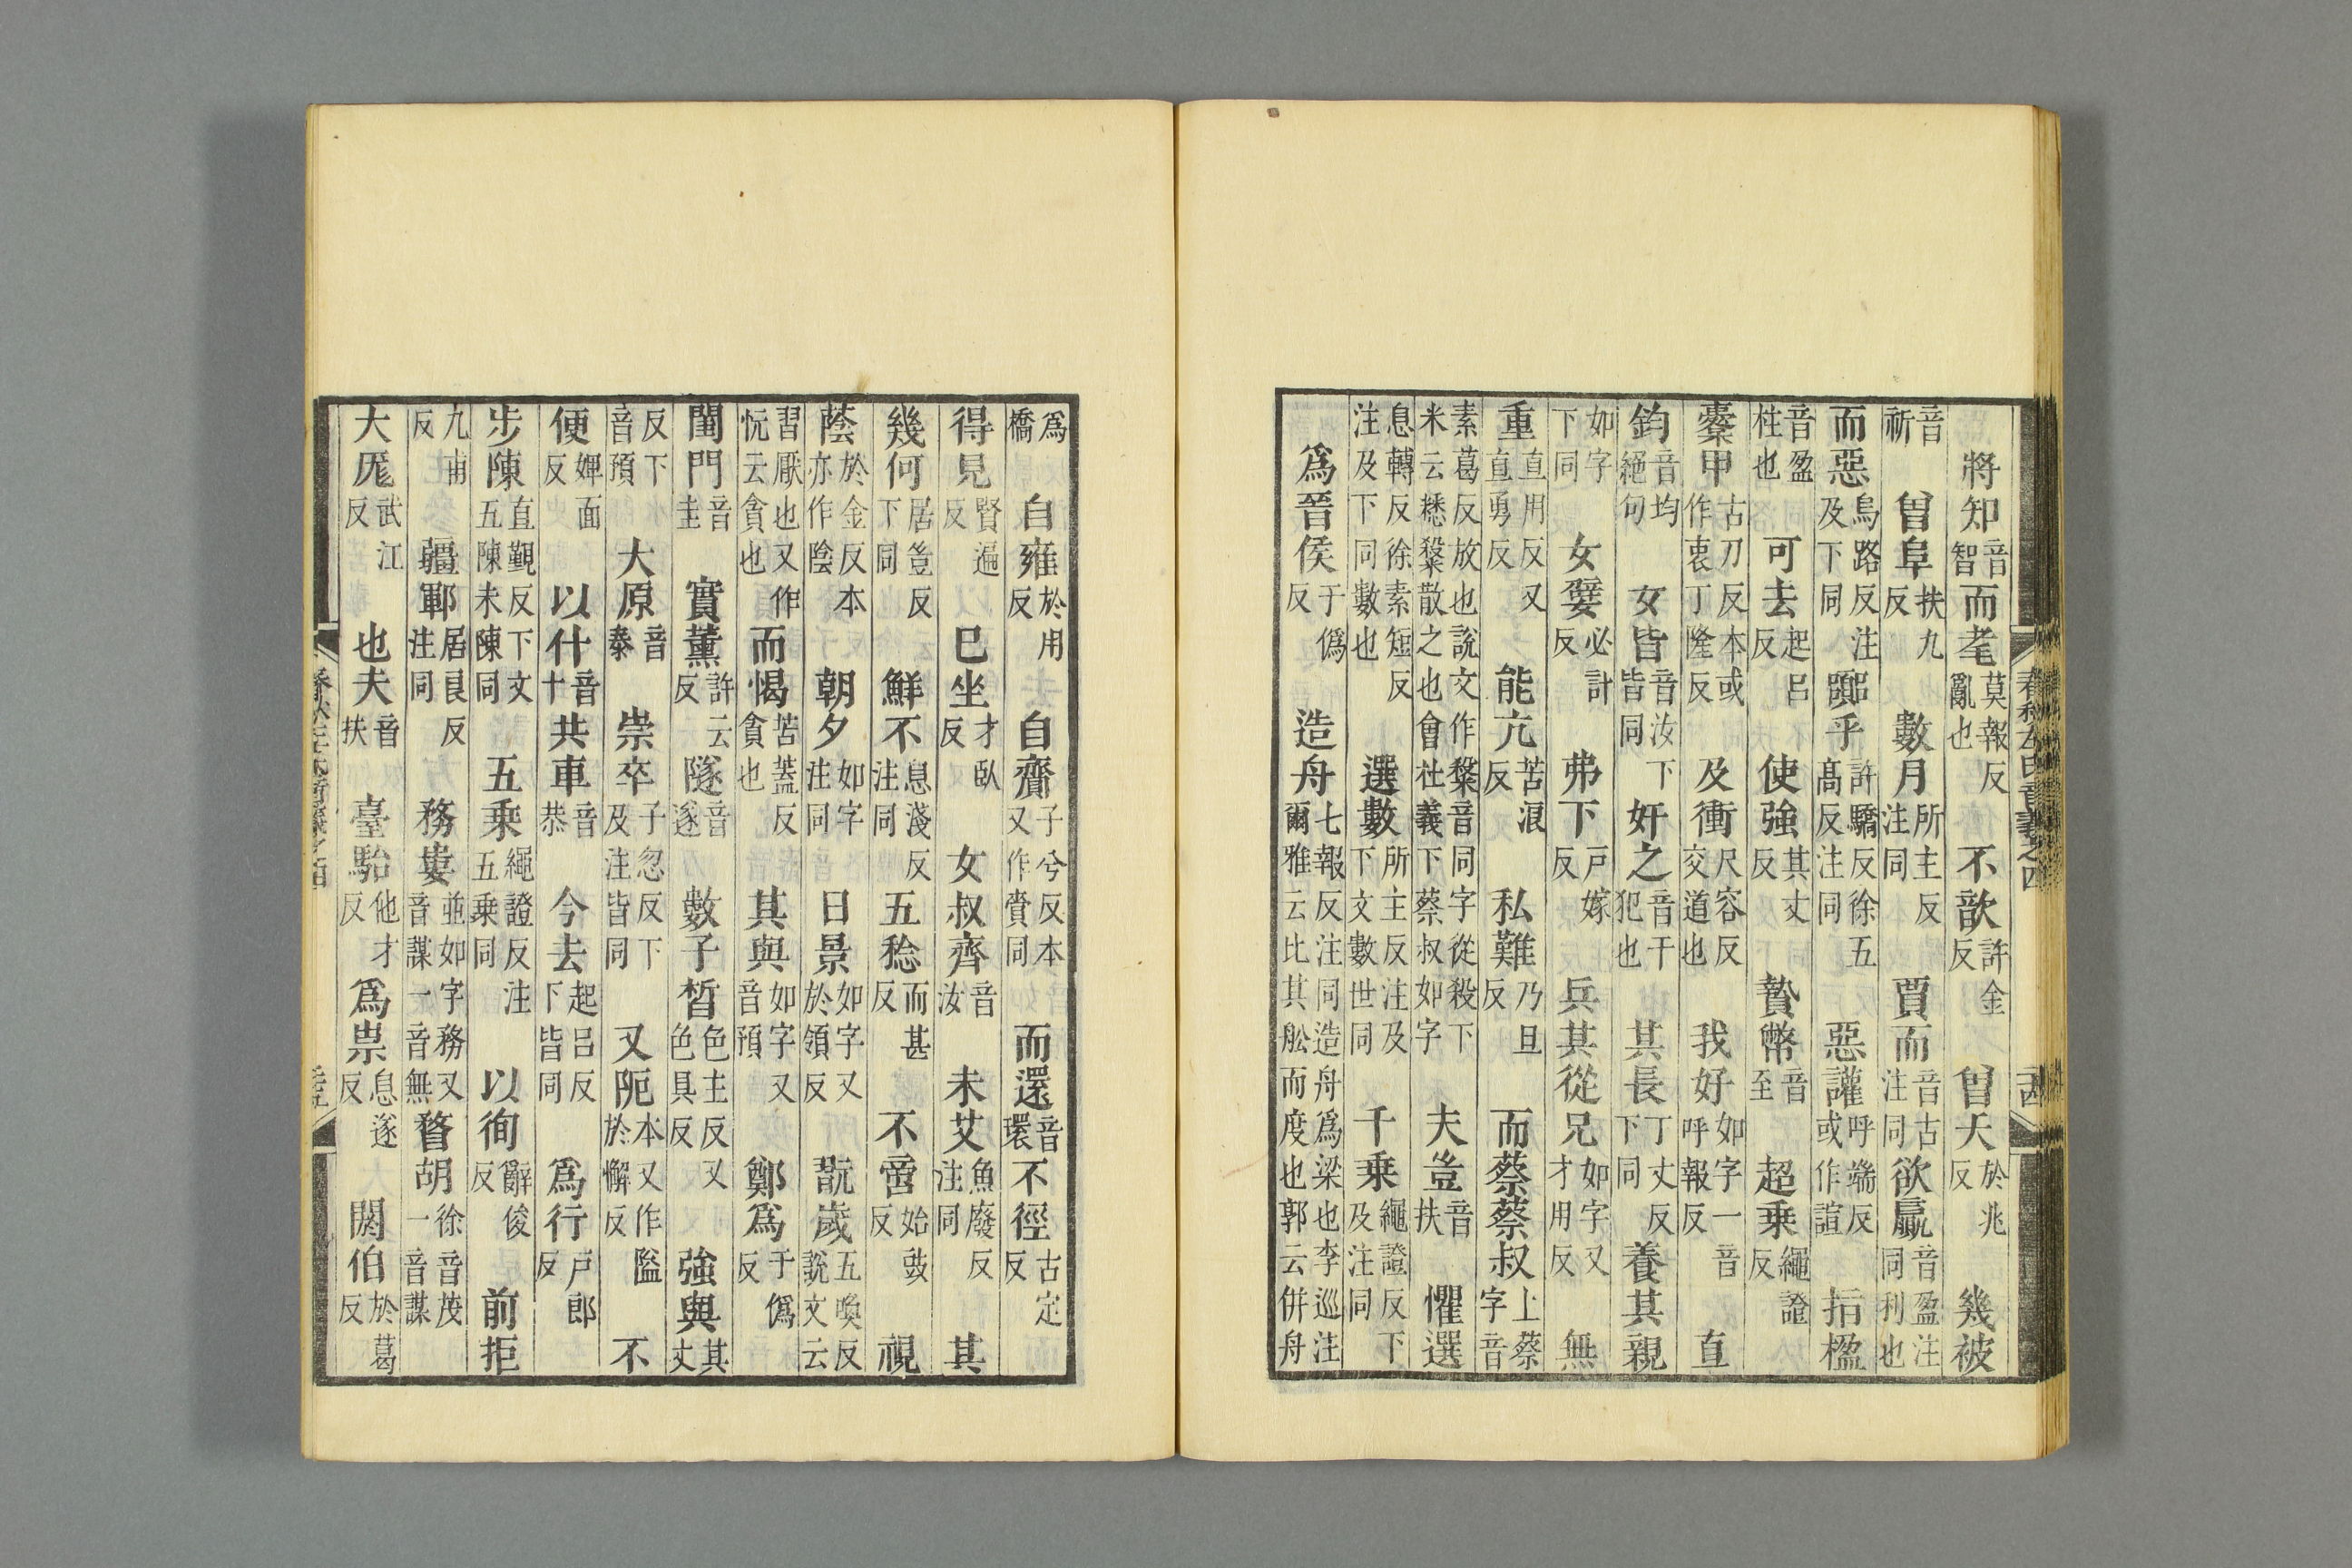 將知音智而耄莫報反亂也不歆許金反曾夭於兆反幾被
音祈曾阜扶九反數月所主反注同賈而音古注同欲贏音盈注同利也
而惡烏路反注及下同嚻乎許驕反徐五高反注同惡讙呼端反或作諠指楹
音盈柱也可去起呂反使強其丈反贄幣音至超乗繩證反
櫜甲古刀反本或作衷丁隆反及衝尺容反交道也我好如字一音呼報反直
鈞音均絕句女皆音汝下皆同奸之音干犯也其長丁丈反下同養其親
如字下同女嬖必計反弗下戸嫁反兵其從兄如字又才用反無
重直用反又直勇反能亢苦浪反私難乃旦反而蔡蔡叔上蔡字音
素葛反放也說文作𥻦音同字從殺下米云糝𥻦散之也會杜義下蔡叔如字夫豈音扶懼選
息轉反徐素短反注及下同數也選數所主反注及下文數世同千乗繩證反下及注同
爲晉侯于僞反造舟七報反注同造舟爲梁也李巡注爾雅云比其舩而度也郭云併舟
爲橋自雍於用反自齎子兮反本又作賫同而還音環不徑古定反
得見賢遍反巳坐才臥反女叔齊音汝未艾魚廢反注同其
幾何居豈反下同鮮不息淺反注同五稔而甚反不啻始豉反視
蔭於金反本亦作陰朝夕如字注同日景如字又於領反翫歲五喚反說文云
習厭也又作忨云貪也而愒苦蓋反貪也其與如字又音預鄭爲于僞反
閨門音圭實薰許云反隧音遂數子晳色主反又色具反強與其丈
反下音預大原音泰崇卒子忽反下及注皆同又阨本又作隘於懈反不
便婢面反以什音十共車音恭今去起呂反下皆同爲行戸郎反
步陳直覲反下文五陳未陳同五乗繩證反注五乗同以徇辭俊反前拒
九甫反疆鄆居良反注同務婁並如字務又音謀一音無瞀胡徐音茂一音謀
大厖武江反也夫音扶臺駘他才反爲祟息遂反閼伯於葛反